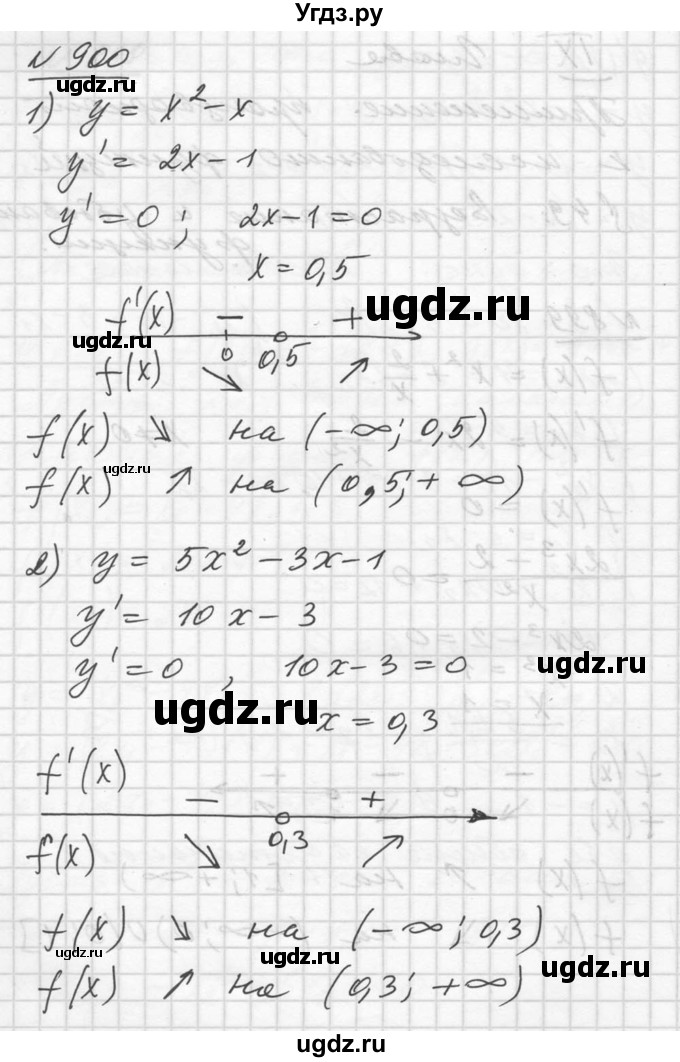 Угдз.ру
№ 900
ugdz.ru
1) y = x² - x
y' = 2x - 1
y' = 0; 2x - 1 = 0
x = 0,5
ugdz.ru
f'(x) - +
ugdz.ru
0 0,5
f(x) ↘ ↗
f(x) ↘ на (-∞; 0,5)
ugdz.ru
f(x) ↗ на (0,5; +∞)
2) y = 5x² - 3x - 1
y' = 10x - 3
y' = 0, 10x - 3 = 0
ugdz.ru
ugdz.ru
x = 0,3
f'(x) - +
0,3
f(x) ↘ ↗
f(x) ↘ на (-∞; 0,3)
ugdz.ru
ugdz.ru
f(x) ↗ на (0,3; +∞)
ugdz.ru